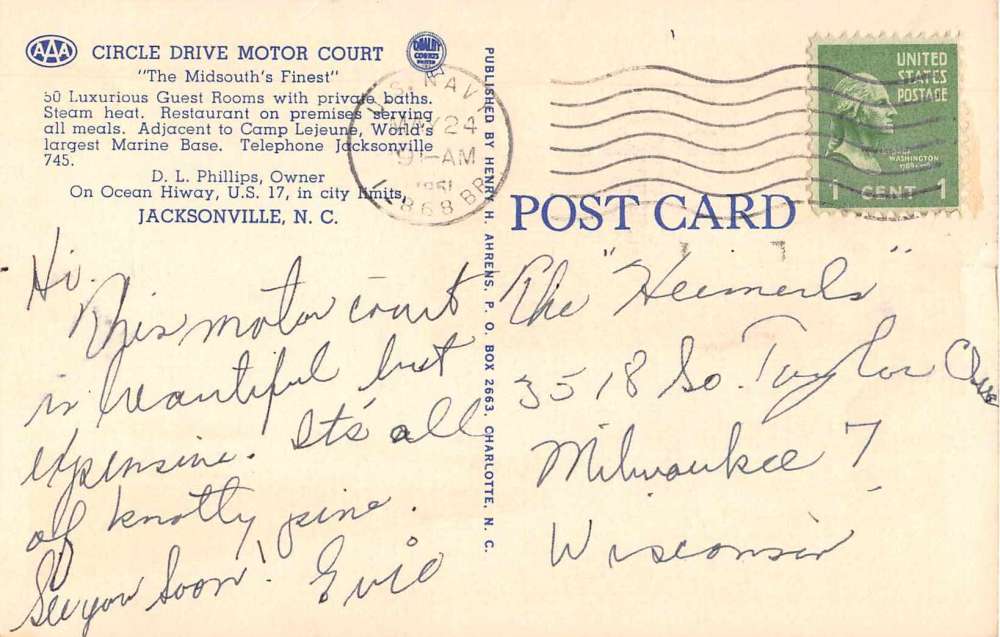 AAA
CIRCLE DRIVE MOTOR COURT
"The Midsouth's Finest"
50 Luxurious Guest Rooms with private baths.
Steam heat. Restaurant on premises serving
all meals. Adjacent to Camp Lejeune, World's
largest Marine Base. Telephone Jacksonville
745.
D. L. Phillips, Owner
On Ocean Hiway, U.S. 17, in city limits,
JACKSONVILLE, N. C.
QUALITY
COURTS
UNITED
U.S. NAVY
MAY 24
9-AM
1951
868 BR
PUBLISHED BY HENRY H. AHRENS, P. O. BOX 2663, CHARLOTTE, N. C.
UNITED
STATES
POSTAGE
GEORGE
WASHINGTON
1 CENT 1
POST CARD
Hi.
This motor court
is beautiful but
expensive. It's all
of knotty pine.
See you soon! Evie
The "Heimerls"
3518 So. Taylor Ave
Milwaukee 7
Wisconsin